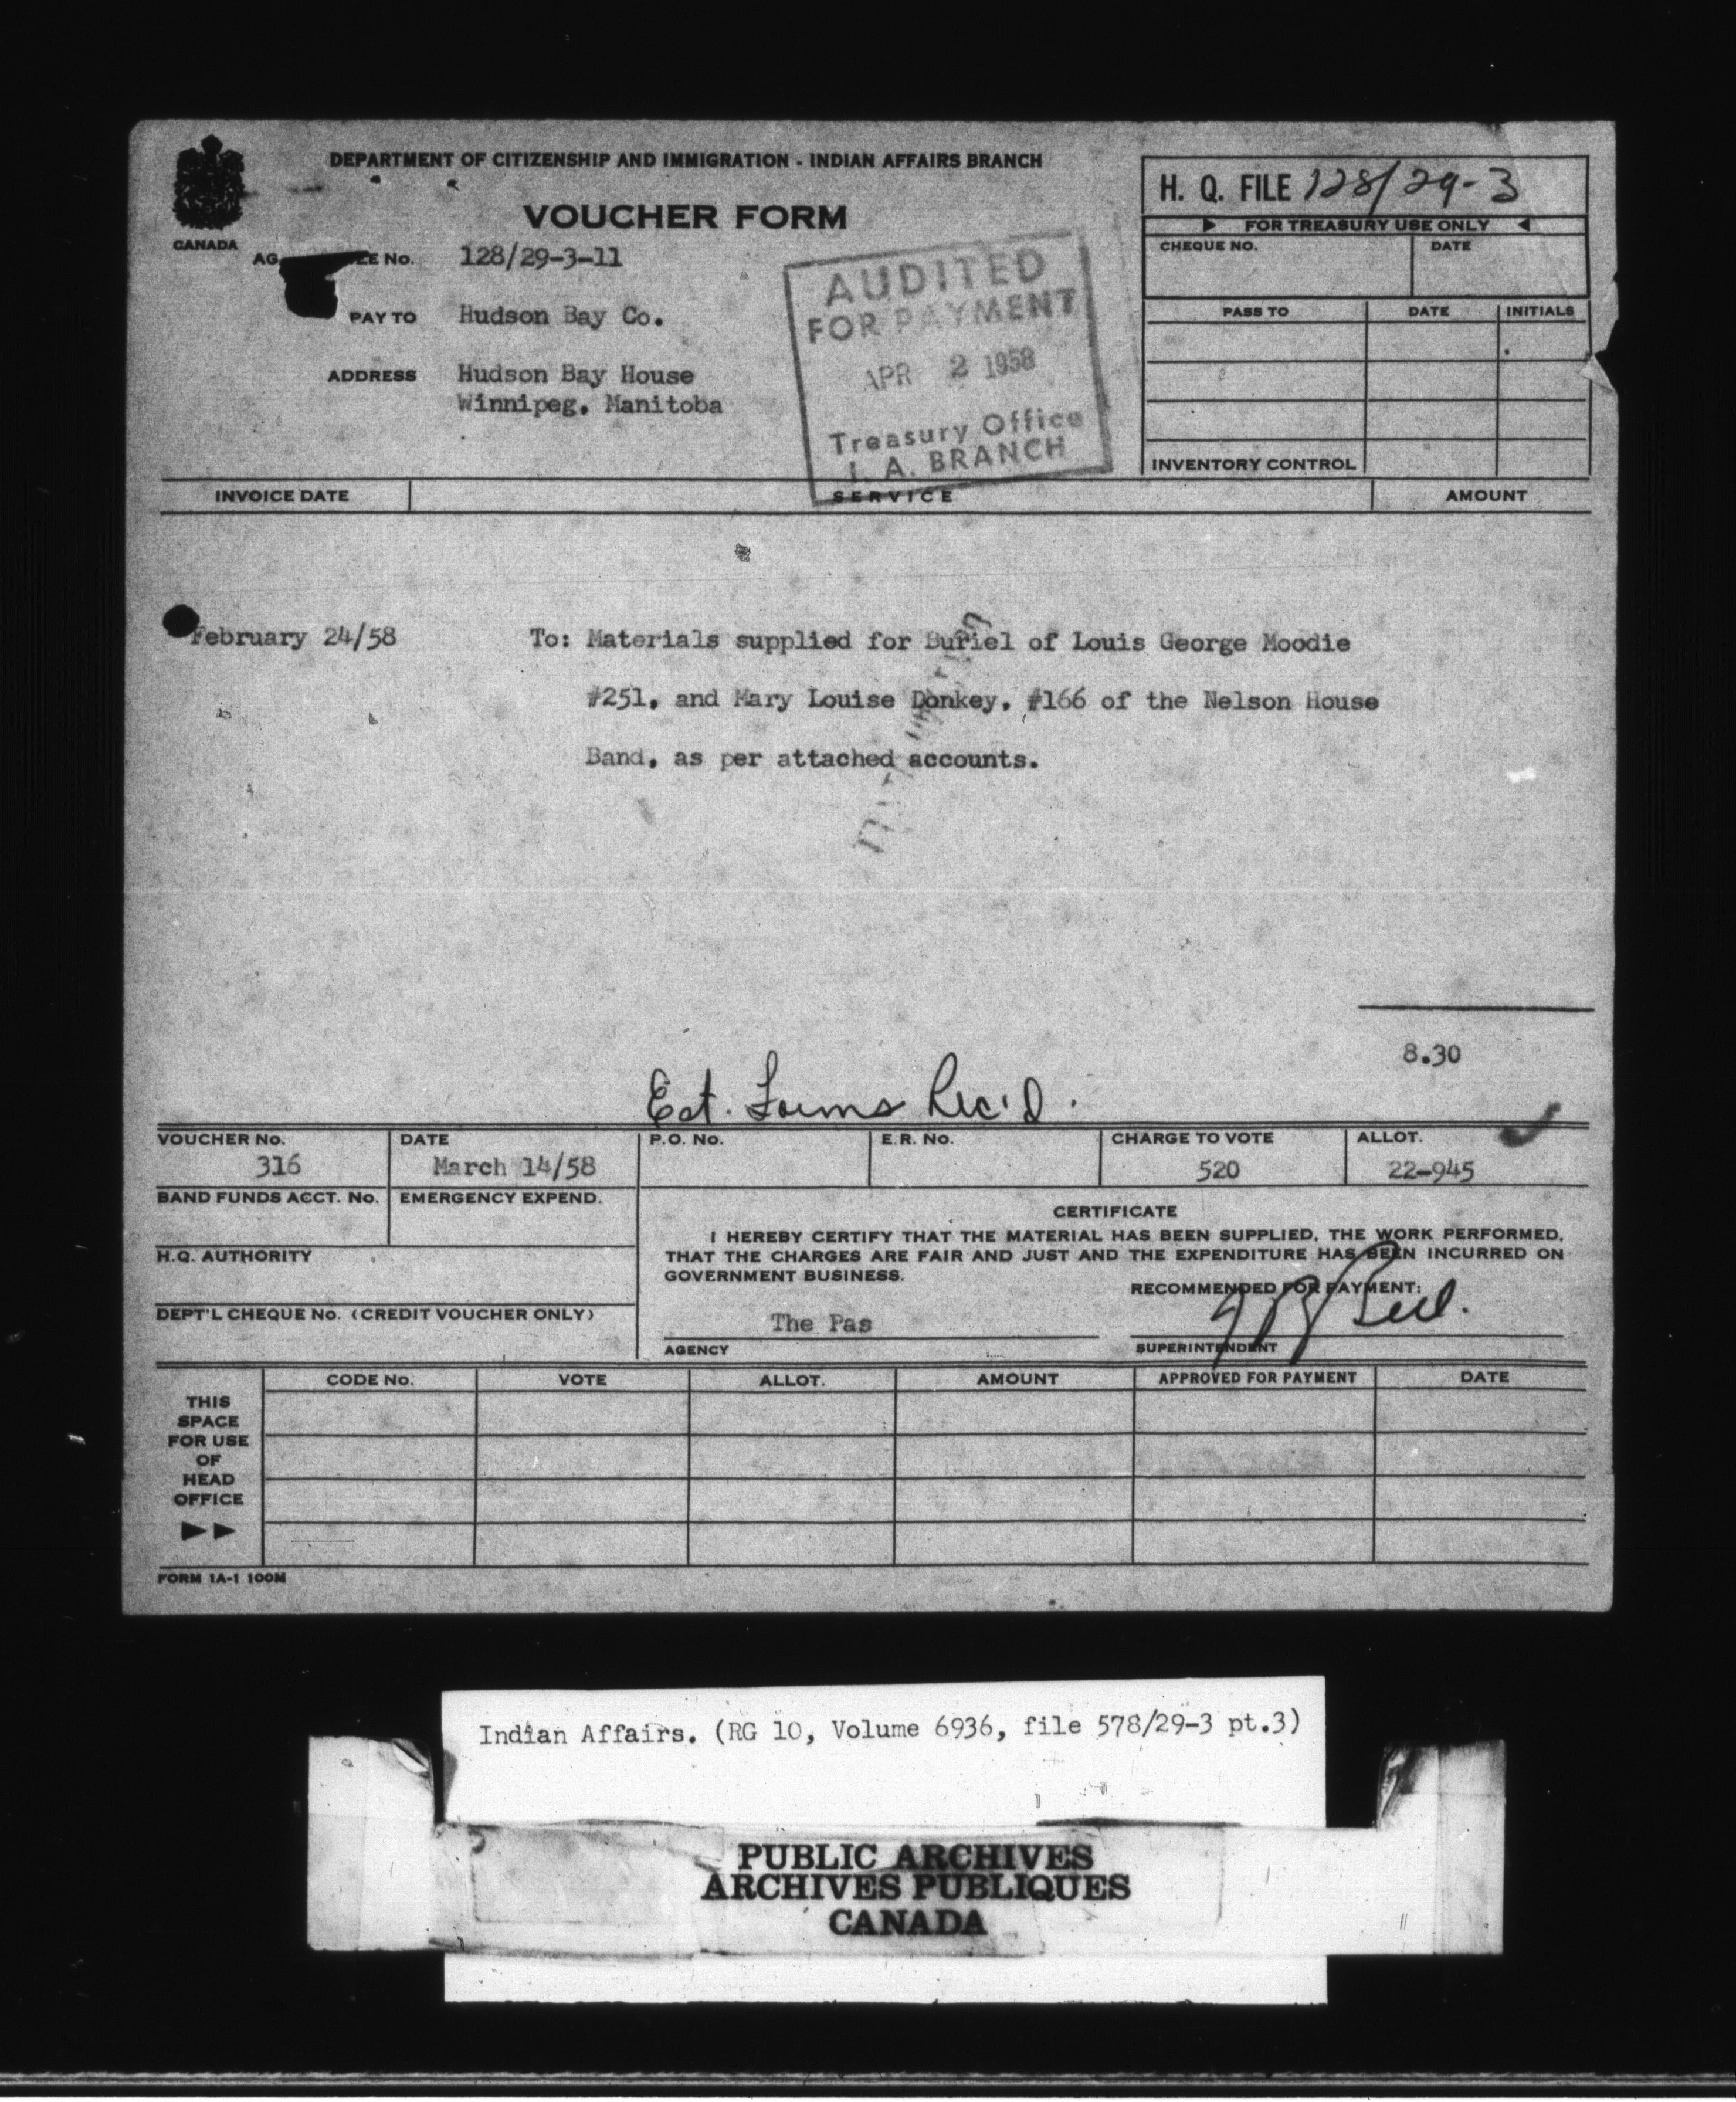 DEPARTMENT OF CITIZENSHIP AND IMMIGRATION - INDIAN AFFAIRS BRANCH
VOUCHER FORM
CANADA
H. Q. FILE 128/29-3
FOR TREASURY USE ONLY
CHEQUE NO. DATE
PASS TO DATE INITIALS
INVENTORY CONTROL
No. 128/29-3-11
PAY TO Hudson Bay Co.
ADDRESS Hudson Bay House
Winnipeg, Manitoba
AUDITED
FOR PAYMENT
APR 2 1958
Treasury Office
I. A. BRANCH
INVOICE DATE SERVICE AMOUNT
February 24/58 To: Materials supplied for Buriel of Louis George Moodie
#251, and Mary Louise Donkey, #166 of the Nelson House
Band, as per attached accounts.
8.30
Est. Forms Rec'd.
VOUCHER No. DATE P.O. No. E.R. No. CHARGE TO VOTE ALLOT.
316 March 14/58 520 22-945
BAND FUNDS ACCT. No. EMERGENCY EXPEND.
H.Q. AUTHORITY
DEPT'L CHEQUE No. (CREDIT VOUCHER ONLY)
CERTIFICATE
I HEREBY CERTIFY THAT THE MATERIAL HAS BEEN SUPPLIED, THE WORK PERFORMED,
THAT THE CHARGES ARE FAIR AND JUST AND THE EXPENDITURE HAS BEEN INCURRED ON
GOVERNMENT BUSINESS.
RECOMMENDED FOR PAYMENT:
The Pas
AGENCY SUPERINTENDENT
CODE No. VOTE ALLOT. AMOUNT APPROVED FOR PAYMENT DATE
THIS
SPACE
FOR USE
OF
HEAD
OFFICE
FORM 1A-1 100M
Indian Affairs. (RG 10, Volume 6936, file 578/29-3 pt.3)
PUBLIC ARCHIVES
ARCHIVES PUBLIQUES
CANADA